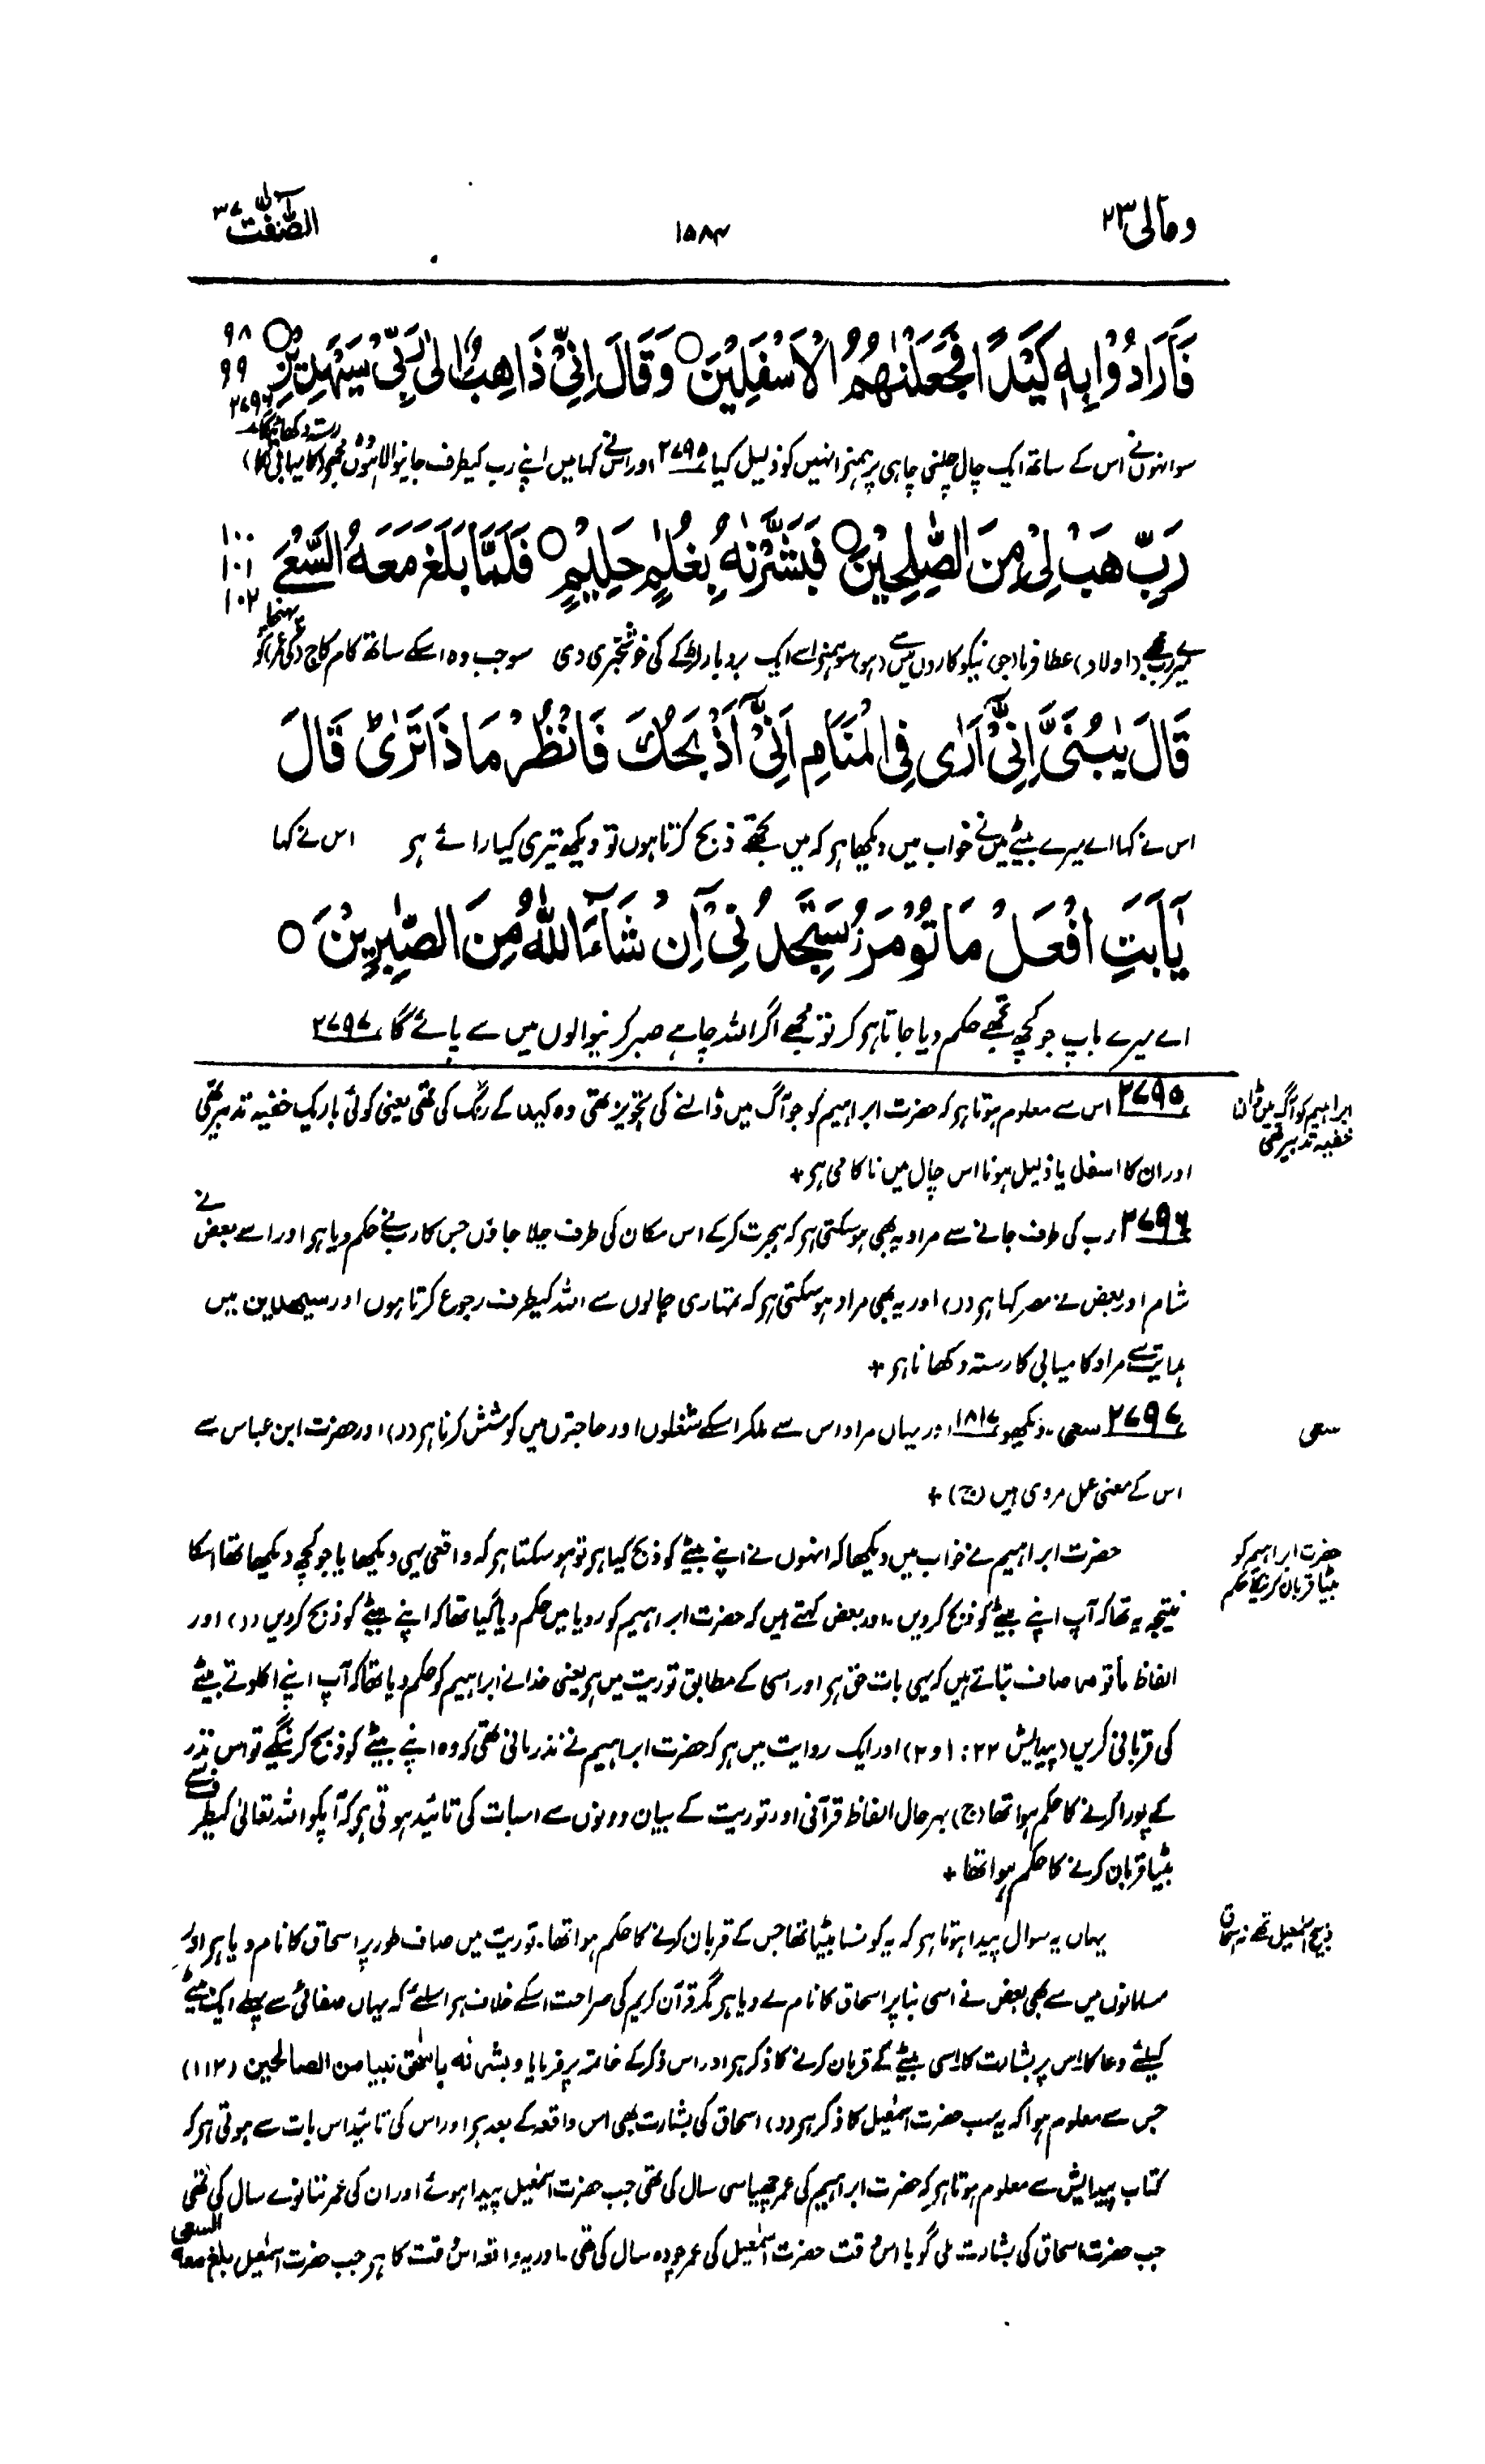 ومالی ۲۳
۱۵۸۴
الصّٰٓفّٰت ۳۷
فَاَرَادُوْا بِهٖ كَیْدًا فَجَعَلْنٰهُمُ الْاَسْفَلِیْنَ○ وَقَالَ اِنِّیْ ذَاهِبٌ اِلٰی رَبِّیْ سَیَهْدِیْنِ○
۹۸
۹۹
سو انہوں نے اس کے ساتھ ایک چال چلنی چاہی پر ہم نے انہیں کو ذلیل کیا ۲۷۹۵ اور اس نے کہا میں اپنے رب کیطرف جانیوالا ہوں وہ مجھے (کامیابی کا) رستہ دکھائیگا ۲۷۹۶
رَبِّ هَبْ لِیْ مِنَ الصّٰلِحِیْنَ○ فَبَشَّرْنٰهُ بِغُلٰمٍ حَلِیْمٍ○ فَلَمَّا بَلَغَ مَعَهُ السَّعْیَ
۱۰۰
۱۰۱
۱۰۲
میرے رب مجھے (اولاد) عطا فرما (جو) نیکوکاروں میں سے (ہو) سو ہم نے اسے ایک بردبار لڑکے کی خوشخبری دی سو جب وہ اسکے ساتھ کام کاج (کی عمر) کو پہنچا
قَالَ یٰبُنَیَّ اِنِّیْٓ اَرٰی فِی الْمَنَامِ اَنِّیْٓ اَذْبَحُكَ فَانْظُرْ مَاذَا تَرٰیؕ قَالَ
اس نے کہا اے میرے بیٹے میں نے خواب میں دیکھا ہر کہ میں تجھے ذبح کرتا ہوں تو دیکھ تیری کیا رائے ہر اس نے کہا
یٰٓاَبَتِ افْعَلْ مَا تُؤْمَرُ سَتَجِدُنِیْٓ اِنْ شَآءَ اللّٰهُ مِنَ الصّٰبِرِیْنَ○
اے میرے باپ جو کچھ تجھے حکم دیا جاتا ہر کر تو مجھے اگر اللہ چاہے صبر کرنیوالوں میں سے پائے گا ۲۷۹۷
۲۷۹۵ اس سے معلوم ہوتا ہر کہ حضرت ابراہیم کو جو آگ میں ڈالنے کی تجویز تھی وہ کید کے رنگ کی تھی یعنی کوئی باریک خفیہ تدبیر تھی
ابراہیم کو آگ میں ڈالنا
خفیہ تدبیر تھی
اور ان کا اسفل یا ذلیل ہونا اس چال میں ناکامی ہر +
۲۷۹۶ رب کی طرف جانے سے مراد یہ بھی ہو سکتی ہر کہ ہجرت کرکے اس مکان کی طرف چلا جاؤں جس کا رب نے حکم دیا ہر اور اسے بعض نے
شام اور بعض نے مصر کہا ہر (ر) اور یہ بھی مراد ہو سکتی ہر کہ تمہاری چالوں سے اللہ کیطرف رجوع کرتا ہوں اور سیھدین میں
ہدایت سے مراد کامیابی کا رستہ دکھانا ہر +
۲۷۹۷ سعی۔ دیکھو ۱۸۱۷ اور یہاں مراد اس سے ملکر اسکے شغلوں اور حاجتوں میں کوشش کرنا ہر (ر) اور حضرت ابن عباس سے
سعی
اس کے معنی عمل مروی ہیں (ج) +
حضرت ابراہیم نے خواب میں دیکھا کہ انہوں نے اپنے بیٹے کو ذبح کیا ہر تو ہو سکتا ہر کہ واقعی یہی دیکھا یا جو کچھ دیکھا تھا اسکا
حضرت ابراہیم کو
بیٹا قربان کرنیکا حکم
نتیجہ یہ تھا کہ آپ اپنے بیٹے کو ذبح کردیں۔ اور بعض کہتے ہیں کہ حضرت ابراہیم کو رویا میں حکم دیا گیا تھا کہ اپنے بیٹے کو ذبح کردیں (ر) اور
الفاظ ماتؤمر صاف بتاتے ہیں کہ یہی بات حق ہر اور اسی کے مطابق توریت میں ہر یعنی خدا نے ابراہیم کو حکم دیا تھا کہ آپ اپنے اکلوتے بیٹے
کی قربانی کریں (پیدایش ۲۲: ۱و۲) اور ایک روایت میں ہر کہ حضرت ابراہیم نے نذر مانی تھی کہ وہ اپنے بیٹے کو ذبح کرینگے تو اس نذر
کے پورا کرنے کا حکم ہوا تھا (ج) بہر حال الفاظ قرآنی اور توریت کے بیان دونوں سے اسبات کی تائید ہوتی ہر کہ آپکو اللہ تعالیٰ کیطرف سے
بیٹا قربان کرنے کا حکم ہوا تھا +
یہاں یہ سوال پیدا ہوتا ہر کہ یہ کونسا بیٹا تھا جس کے قربان کرنے کا حکم ہوا تھا۔ توریت میں صاف طور پر اسحاق کا نام دیا ہر اور
ذبیح اسمٰعیل تھے نہ اسحاق
مسلمانوں میں سے بھی بعض نے اسی بنا پر اسحاق کا نام لے دیا ہر مگر قرآن کریم کی صراحت اسکے خلاف ہر اسلئے کہ یہاں صفائی سے پہلے ایک بیٹے
کیلئے دعا کا اس پر بشارت کا اسی بیٹے کے قربان کرنے کا ذکر ہر اور اس ذکر کے خاتمہ پر فرمایا وبشرنٰه باسحٰق نبیا من الصالحین (۱۱۲)
جس سے معلوم ہوا کہ یہ سب حضرت اسمٰعیل کا ذکر ہر (ر) اسحاق کی بشارت بھی اس واقعہ کے بعد ہر اور اس کی تائید اس بات سے ہوتی ہر کہ
کتاب پیدایش سے معلوم ہوتا ہر کہ حضرت ابراہیم کی عمر چھیاسی سال کی تھی جب حضرت اسمٰعیل پیدا ہوئے اور ان کی عمر ننانوے سال کی تھی
جب حضرت اسحاق کی بشارت ملی گویا اس وقت حضرت اسمٰعیل کی عمر چودہ سال کی تھی۔ اور یہ واقعہ اس وقت کا ہر جب حضرت اسمٰعیل بلغ معه السعی